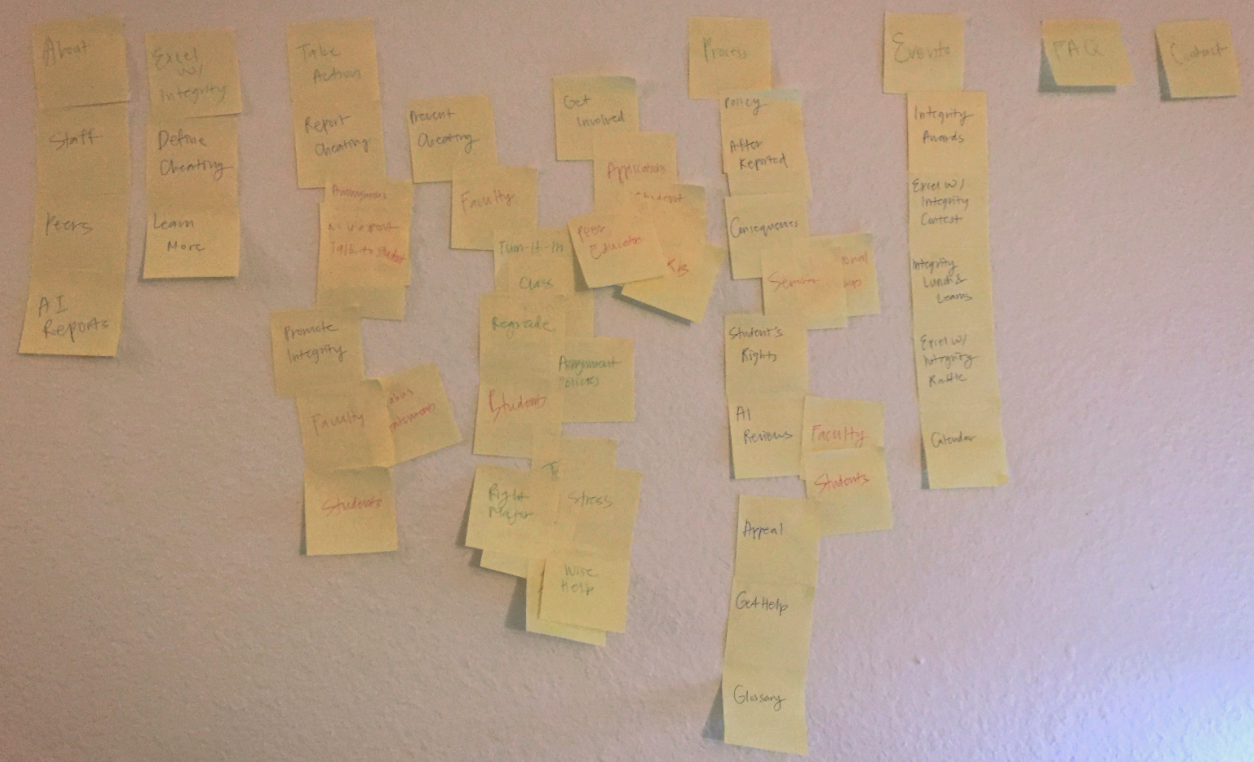 About
Staff
Peers
AI
Reports
Excel
w/
Integrity
Define
Cheating
Learn
More
Take
Action
Report
Cheating
Anonymous
Talk to student
Promote
Integrity
Faculty
Students
Prevent
Cheating
Faculty
Turn-it-in
Class
Regrade
Assignment
Students
Right
Major
Stress
Wise
Help
Get
Involved
Application
Student
Peer
Educator
Process
Policy
After
Reported
Consequences
Seminar
Student's
Rights
AI
Reviews
Faculty
Students
Appeal
Get Help
Glossary
Events
Integrity
Awards
Excel w/
Integrity
Contest
Integrity
Lunch &
Learns
Excel w/
Integrity
Raffle
Calendar
FAQ
Contact